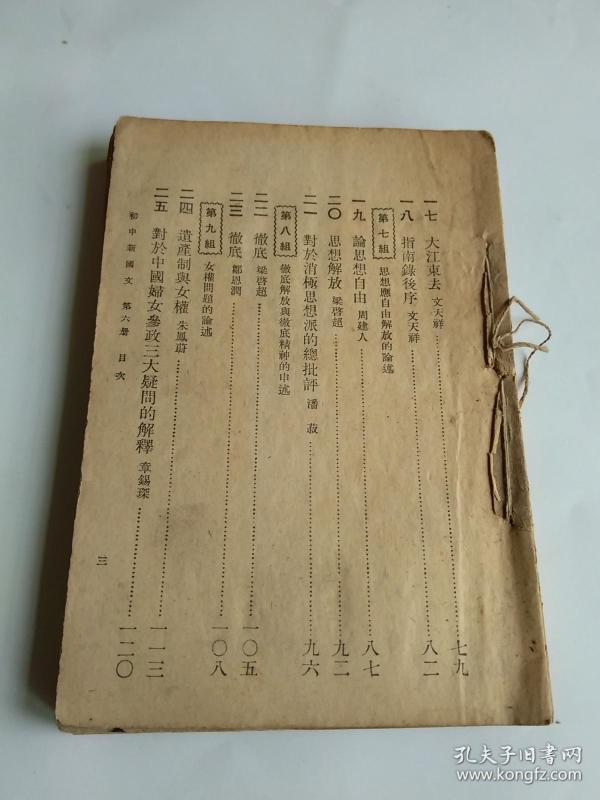 一七 大江東去 文天祥 七九
一八 指南錄後序 文天祥 八二
第七組 思想應自由解放的論述
一九 論思想自由 周建人 八七
二〇 思想解放 梁啓超 九二
二一 對於消極思想派的總批評 潘菽 九六
第八組 徹底解放與徹底精神的申述
二二 徹底 梁啓超 一〇五
二三 徹底 鄒恩潤 一〇八
第九組 女權問題的論述
二四 遺產制與女權 朱鳳蔚 一一三
二五 對於中國婦女參政三大疑問的解釋 章錫琛 一二〇
初中新國文 第六册 目次 三
孔夫子旧书网
www.kongfz.com